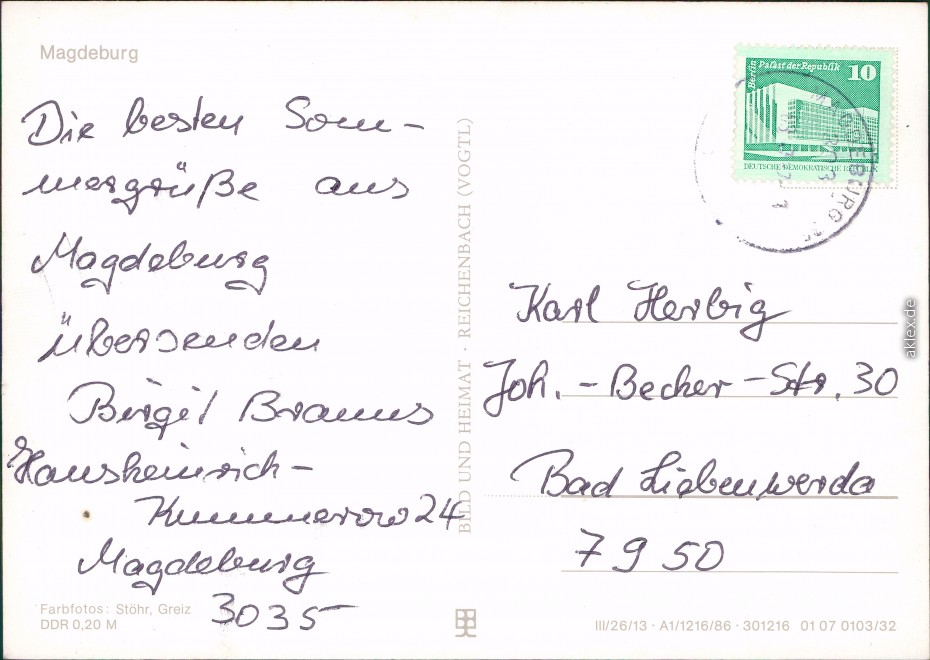 Magdeburg
Die besten Som-
mergrüße aus
Magdeburg
übersenden
Birgit Brauns
Hansheinrich-
Kummerow 24
Magdeburg
3035
Farbfotos: Stöhr, Greiz
DDR 0,20 M
BILD UND HEIMAT · REICHENBACH (VOGTL)
Berlin
Palast der Republik
10
DEUTSCHE DEMOKRATISCHE REPUBLIK
MAGDEBURG
Karl Herbig
Joh. - Becher - Str. 30
Bad Liebenwerda
7950
III/26/13 · A1/1216/86 · 301216 01 07 0103/32
aklex.de